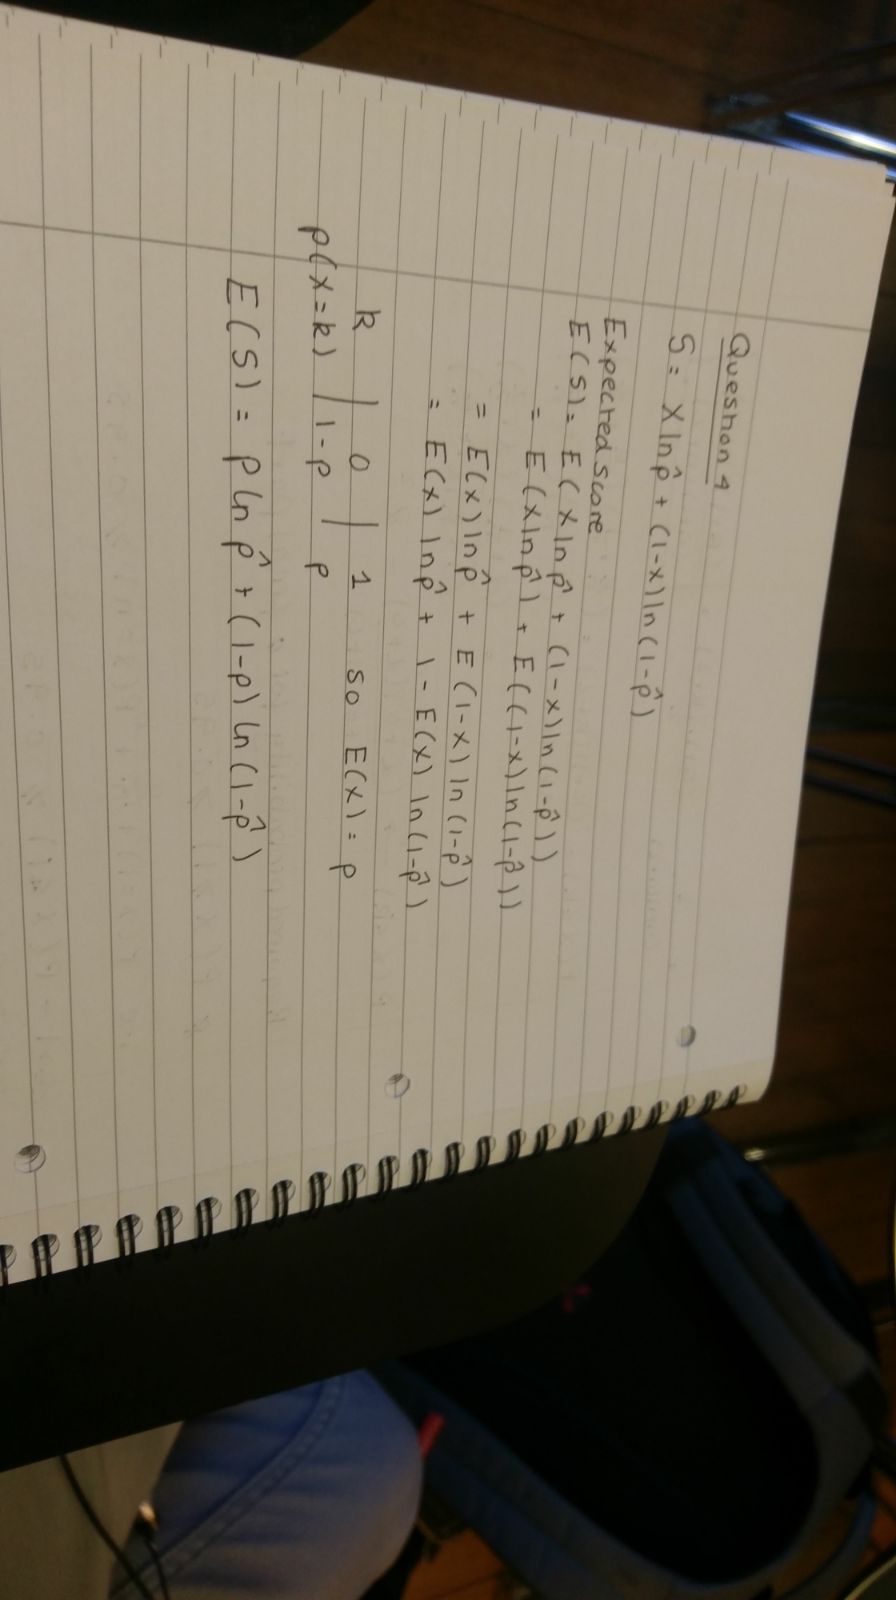 Question 4
S = X ln p̂ + (1-x) ln (1-p̂)
Expected score
E(S) = E(X ln p̂ + (1-x) ln (1-p̂))
= E(X ln p̂) + E((1-x) ln (1-p̂))
= E(x) ln p̂ + E(1-x) ln (1-p̂)
= E(x) ln p̂ + 1 - E(x) ln (1-p̂)
k | 0 | 1 so E(x) = p
p(X=k) | 1-p | p
E(S) = p ln p̂ + (1-p) ln (1-p̂)